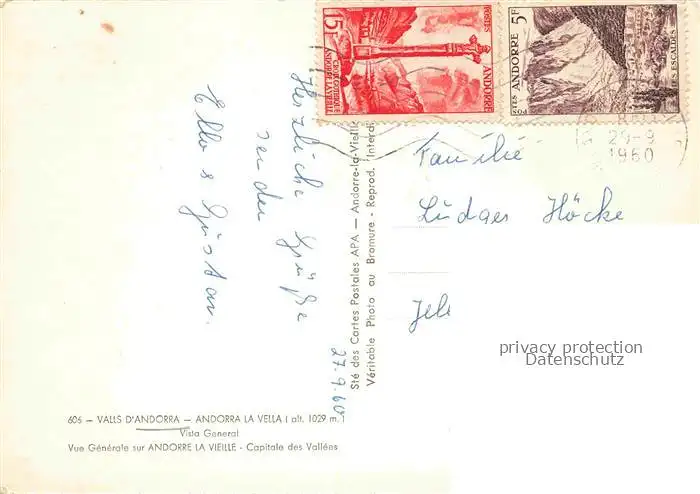 15F
POSTES
ANDORRE
CROIX GOTHIQUE
ANDORRE-LA-VIEILLE
5F
ANDORRE
POSTES
LES ESCALDES
29-9
1960
Herzliche Grüße
senden
Ella & Gustav.
27.9.60
Familie
Ludger Höcke
privacy protection
Datenschutz
Sté des Cartes Postales APA — Andorre-la-Vieille
Véritable Photo au Bromure - Reprod. Interdi
606 — VALLS D'ANDORRA — ANDORRA LA VELLA ( alt. 1029 m. )
Vista General
Vue Générale sur ANDORRE LA VIEILLE - Capitale des Vallées